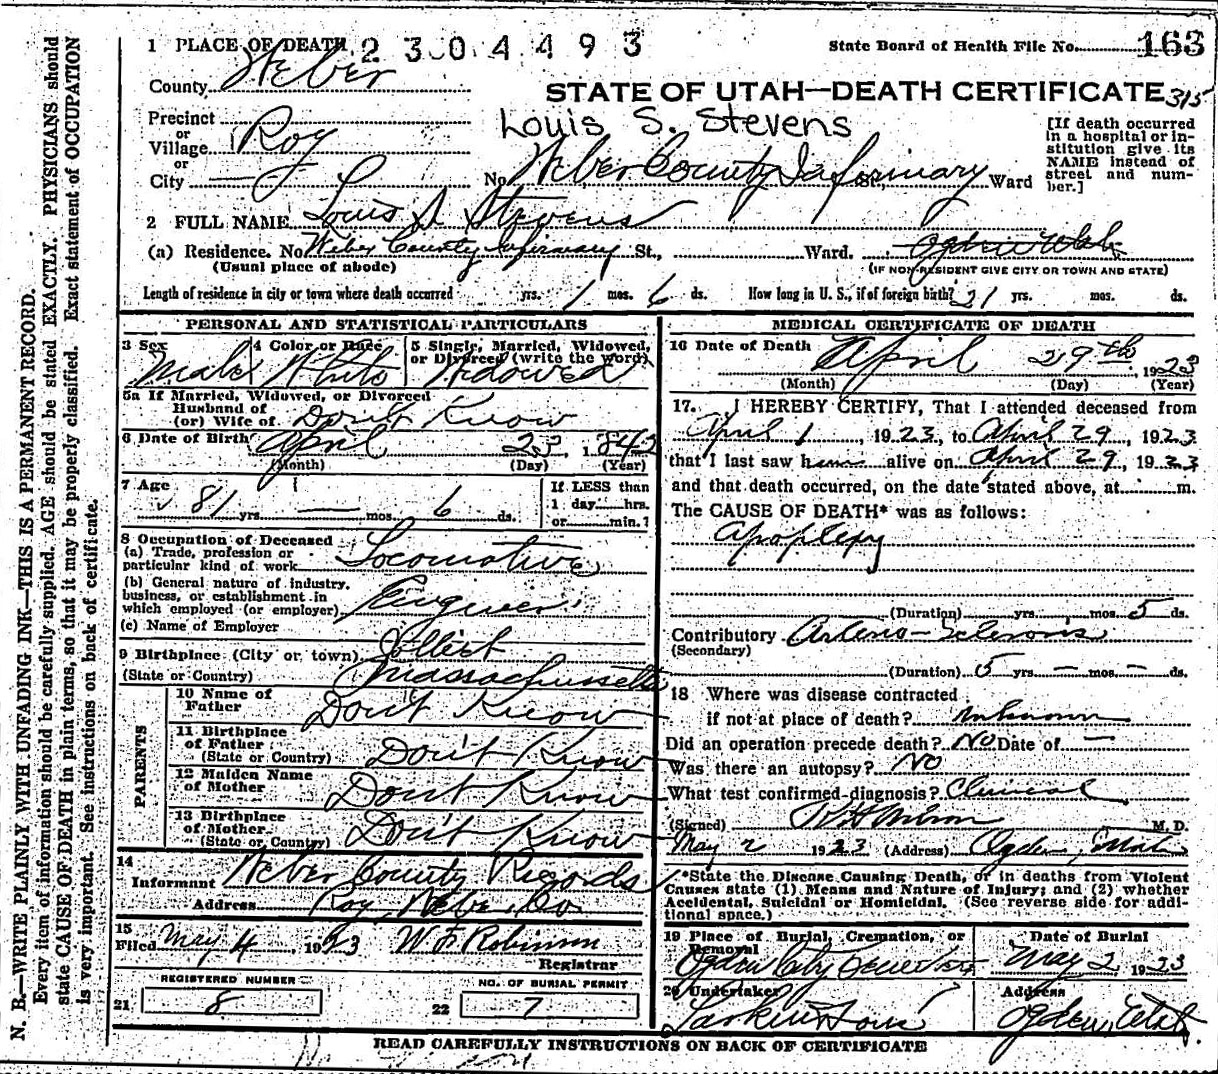 1 PLACE OF DEATH 2304493 State Board of Health File No. 163
County Weber
STATE OF UTAH—DEATH CERTIFICATE 315
Precinct
or
Village Roy
or
City —
Louis S. Stevens
No. Weber County Infirmary St., Ward
[If death occurred
in a hospital or in-
stitution give its
NAME instead of
street and num-
ber.]
2 FULL NAME Louis S. Stevens
(a) Residence. No. Weber County Infirmary St., Ward. Ogden Utah
(Usual place of abode) (IF NON-RESIDENT GIVE CITY OR TOWN AND STATE)
Length of residence in city or town where death occurred yrs. 1 mos. 6 ds. How long in U. S., if of foreign birth? 21 yrs. mos. ds.
PERSONAL AND STATISTICAL PARTICULARS
3 Sex 4 Color or Race 5 Single, Married, Widowed,
or Divorced (write the word)
Male White Widowed
5a If Married, Widowed, or Divorced
Husband of
(or) Wife of Don't Know
6 Date of Birth April 23, 1842
(Month) (Day) (Year)
7 Age 81 yrs. — mos. 6 ds.
If LESS than
1 day hrs.
or min.?
8 Occupation of Deceased
(a) Trade, profession or
particular kind of work Locomotive
(b) General nature of industry,
business, or establishment in
which employed (or employer) Engineer
(c) Name of Employer
9 Birthplace (City or town)
(State or Country) Massachussetts
PARENTS
10 Name of
Father Don't Know
11 Birthplace
of Father
(State or Country) Don't Know
12 Maiden Name
of Mother Don't Know
13 Birthplace
of Mother
(State or Country) Don't Know
14
Informant Weber County Records
Address Roy, Weber Co
15
Filed May 4, 1923 W F Robinson
Registrar
REGISTERED NUMBER NO. OF BURIAL PERMIT
21 8 22 7
MEDICAL CERTIFICATE OF DEATH
16 Date of Death April 29th, 1923
(Month) (Day) (Year)
17. I HEREBY CERTIFY, That I attended deceased from
April 1, 1923, to April 29, 1923
that I last saw him alive on April 29, 1923
and that death occurred, on the date stated above, at m.
The CAUSE OF DEATH* was as follows:
Apoplexy
(Duration) yrs. mos. 5 ds.
Contributory Arterio-Sclerosis
(Secondary)
(Duration) 5 yrs. — mos. — ds.
18 Where was disease contracted
if not at place of death? unknown
Did an operation precede death? No Date of —
Was there an autopsy? No
What test confirmed diagnosis? Clinical
(Signed) M. D.
May 2 1923 (Address) Ogden, Utah
*State the Disease Causing Death, or in deaths from Violent
Causes state (1) Means and Nature of Injury; and (2) whether
Accidental, Suicidal or Homicidal. (See reverse side for addi-
tional space.)
19 Place of Burial, Cremation, or
Removal
Date of Burial
Ogden City Cemetery May 2 1923
20 Undertaker Address
Larkin & Sons Ogden, Utah
READ CAREFULLY INSTRUCTIONS ON BACK OF CERTIFICATE
N. B.—WRITE PLAINLY WITH UNFADING INK—THIS IS A PERMANENT RECORD.
Every item of information should be carefully supplied. AGE should be stated EXACTLY. PHYSICIANS should
state CAUSE OF DEATH in plain terms, so that it may be properly classified. Exact statement of OCCUPATION
is very important. See instructions on back of certificate.